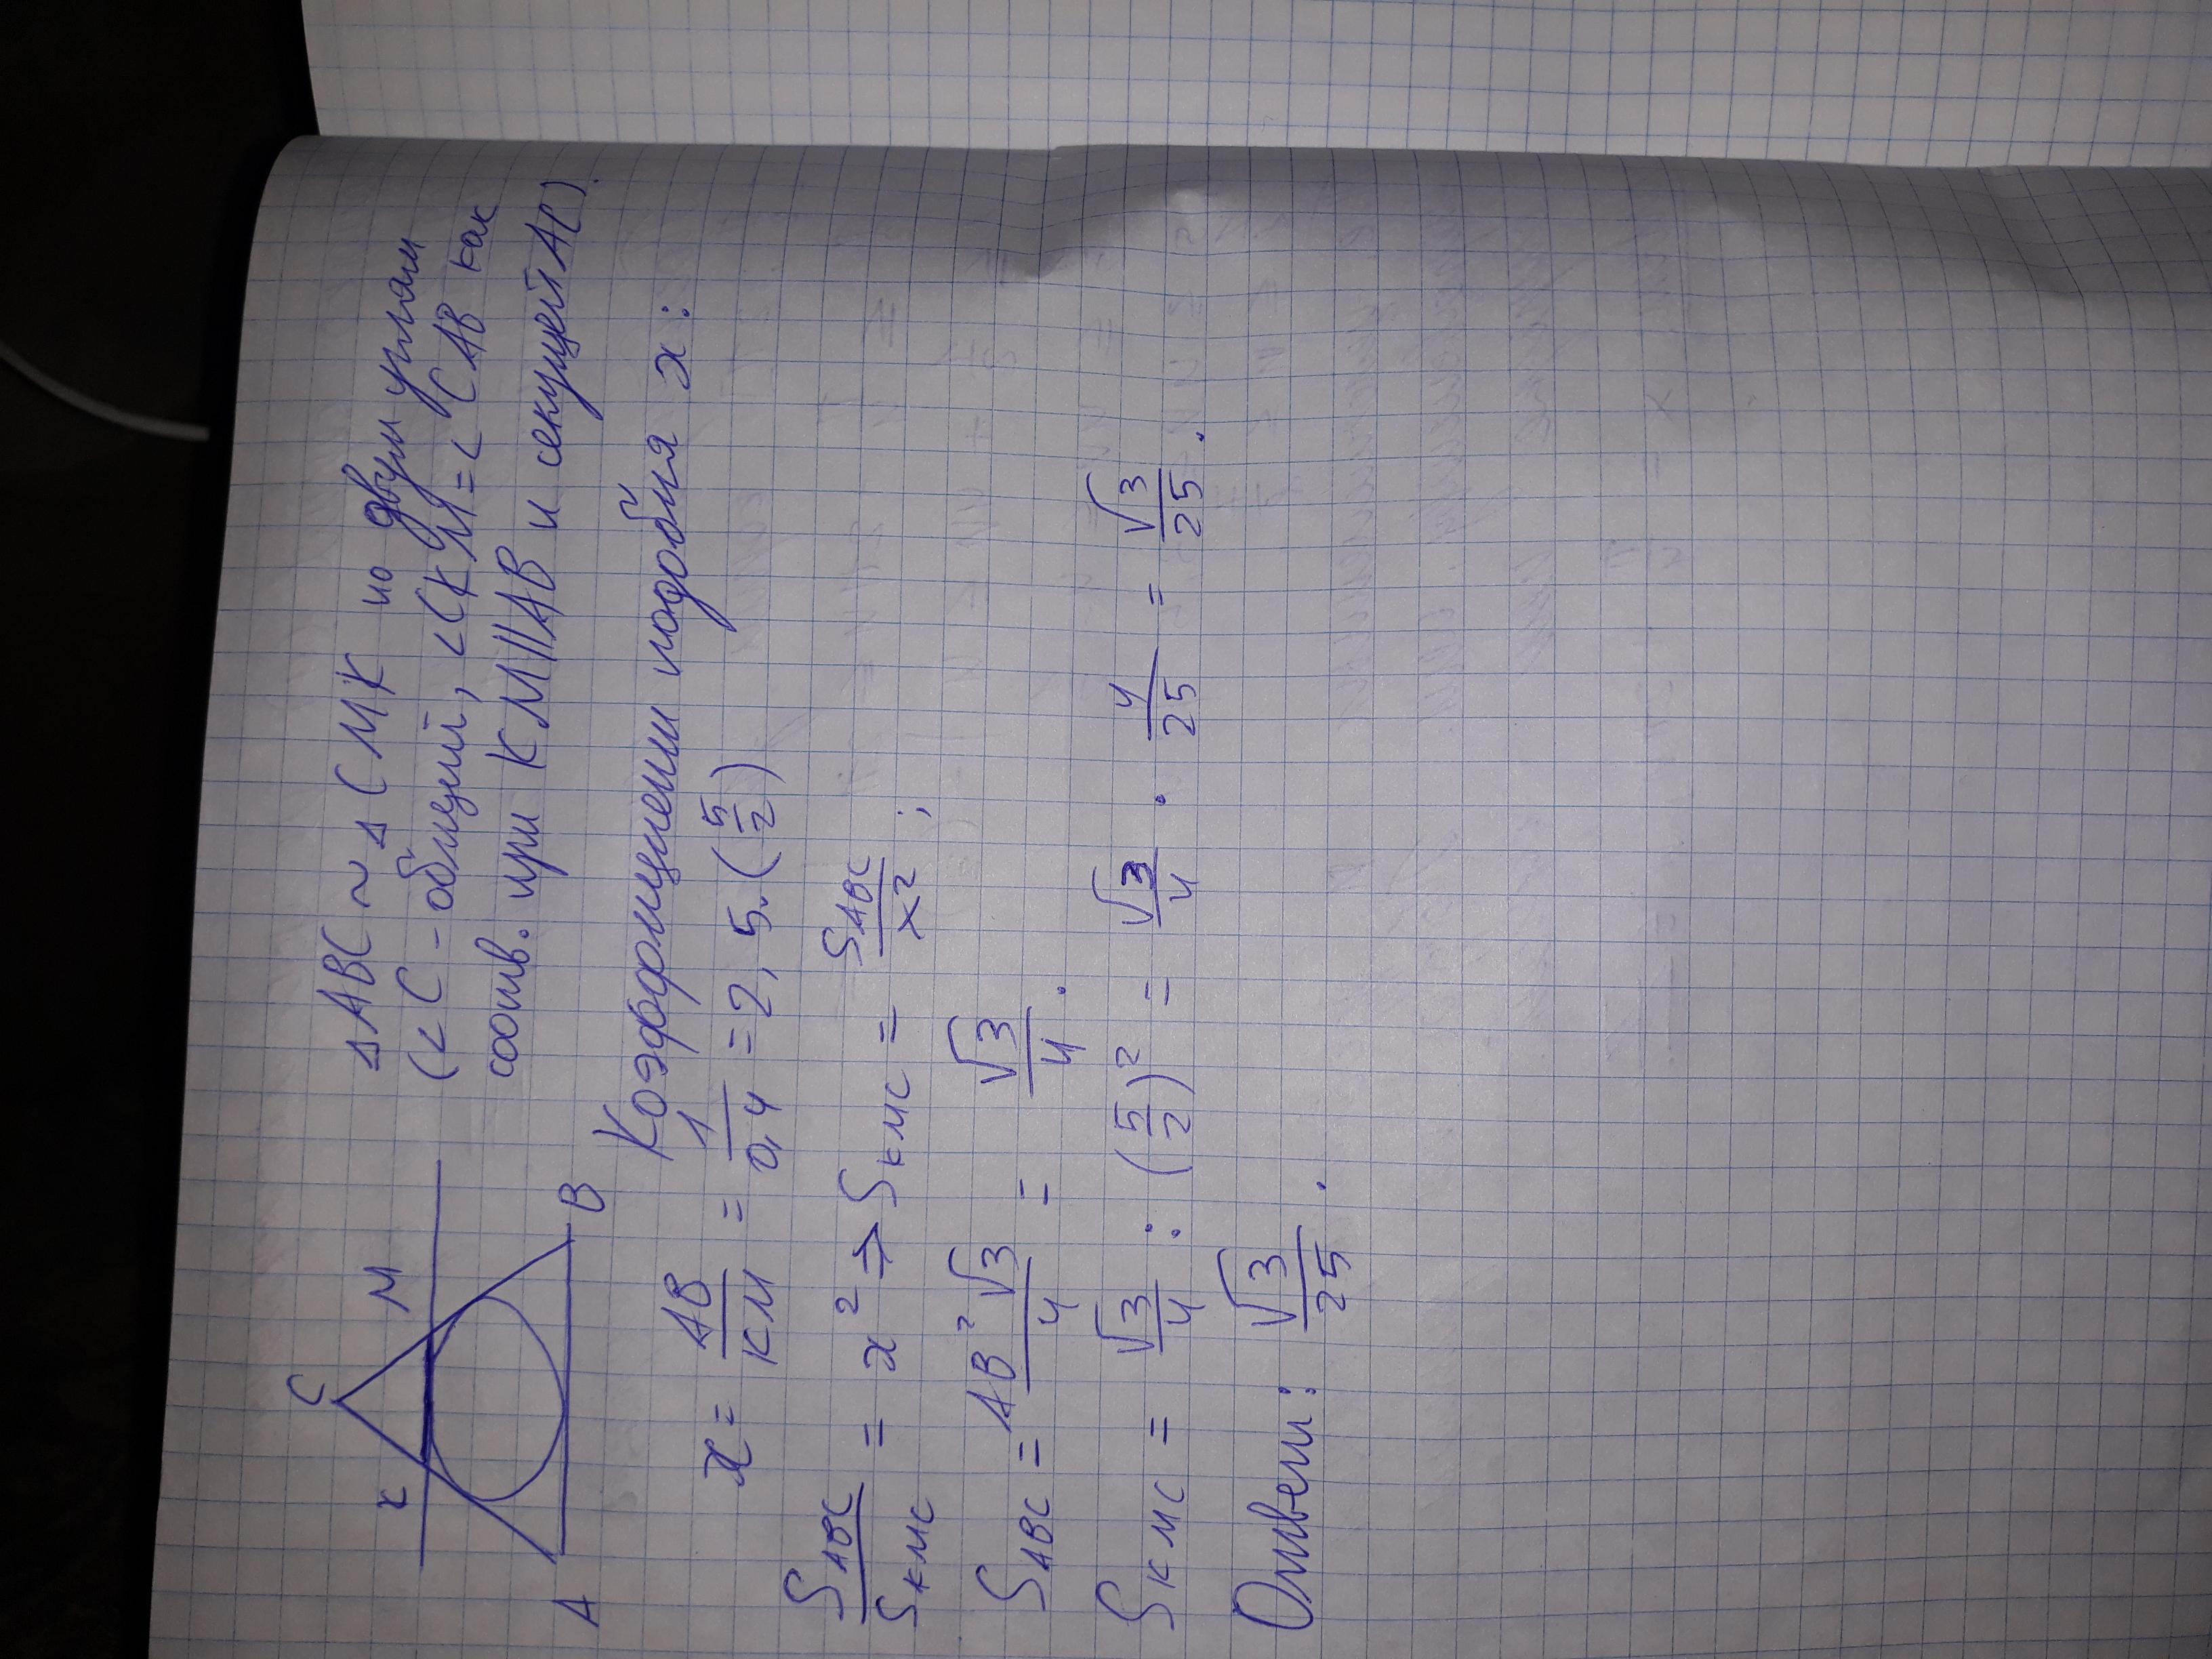 C
K M
A B
△ABC ~ △CMK по двум углам
(<C - общий, <CKM = <CAB как
соотв. при KM||AB и секущей AC).
Коэффициент подобия x:
x = AB/KM = 1/0,4 = 2,5. (5/2)
S ABC / S KMC = x² ⇒ S KMC = S ABC / x² ;
S ABC = AB²√3/4 = √3/4.
S KMC = √3/4 : (5/2)² = √3/4 · 4/25 = √3/25.
Ответ: √3/25.